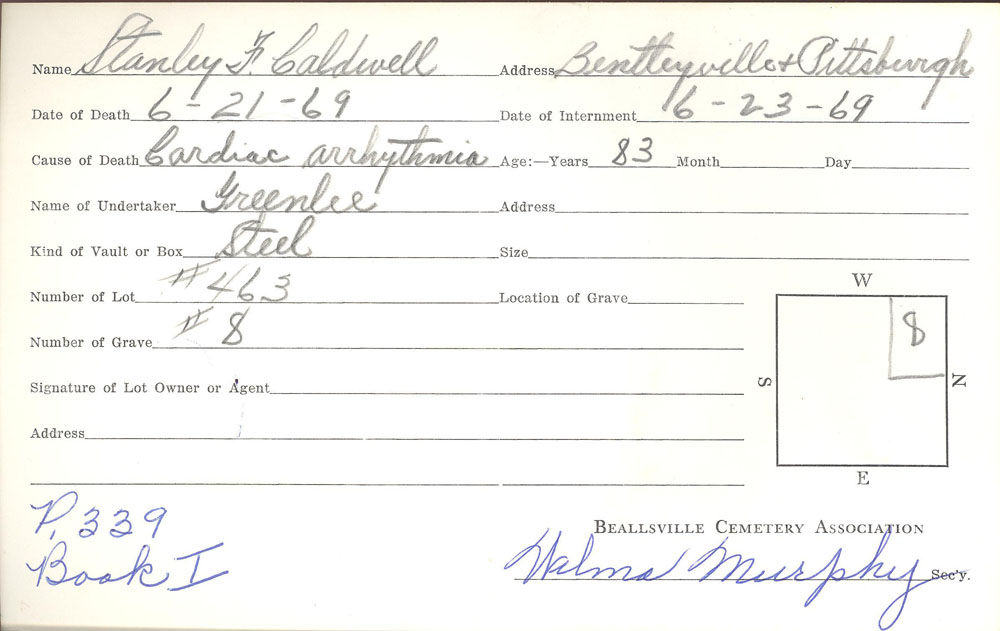 Name Stanley F. Caldwell Address Bentleyville + Pittsburgh
Date of Death 6-21-69 Date of Internment 6-23-69
Cause of Death Cardiac arrhythmia Age:—Years 83 Month Day
Name of Undertaker Greenlee Address
Kind of Vault or Box Steel Size
Number of Lot #463 Location of Grave
Number of Grave #8
Signature of Lot Owner or Agent
Address
W
8
S N
E
P. 339
Book I
BEALLSVILLE CEMETERY ASSOCIATION
Walma Murphy Sec'y.